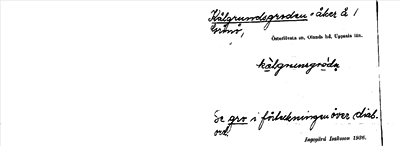 Kålgrundsgroden - åker å I
Gränö,
Österlövsta sn, Olands hd, Uppsala län.
kålgrunsgróda
Se gro i förteckningen över dial.
ord.
Ingegärd Isaksson 1936.